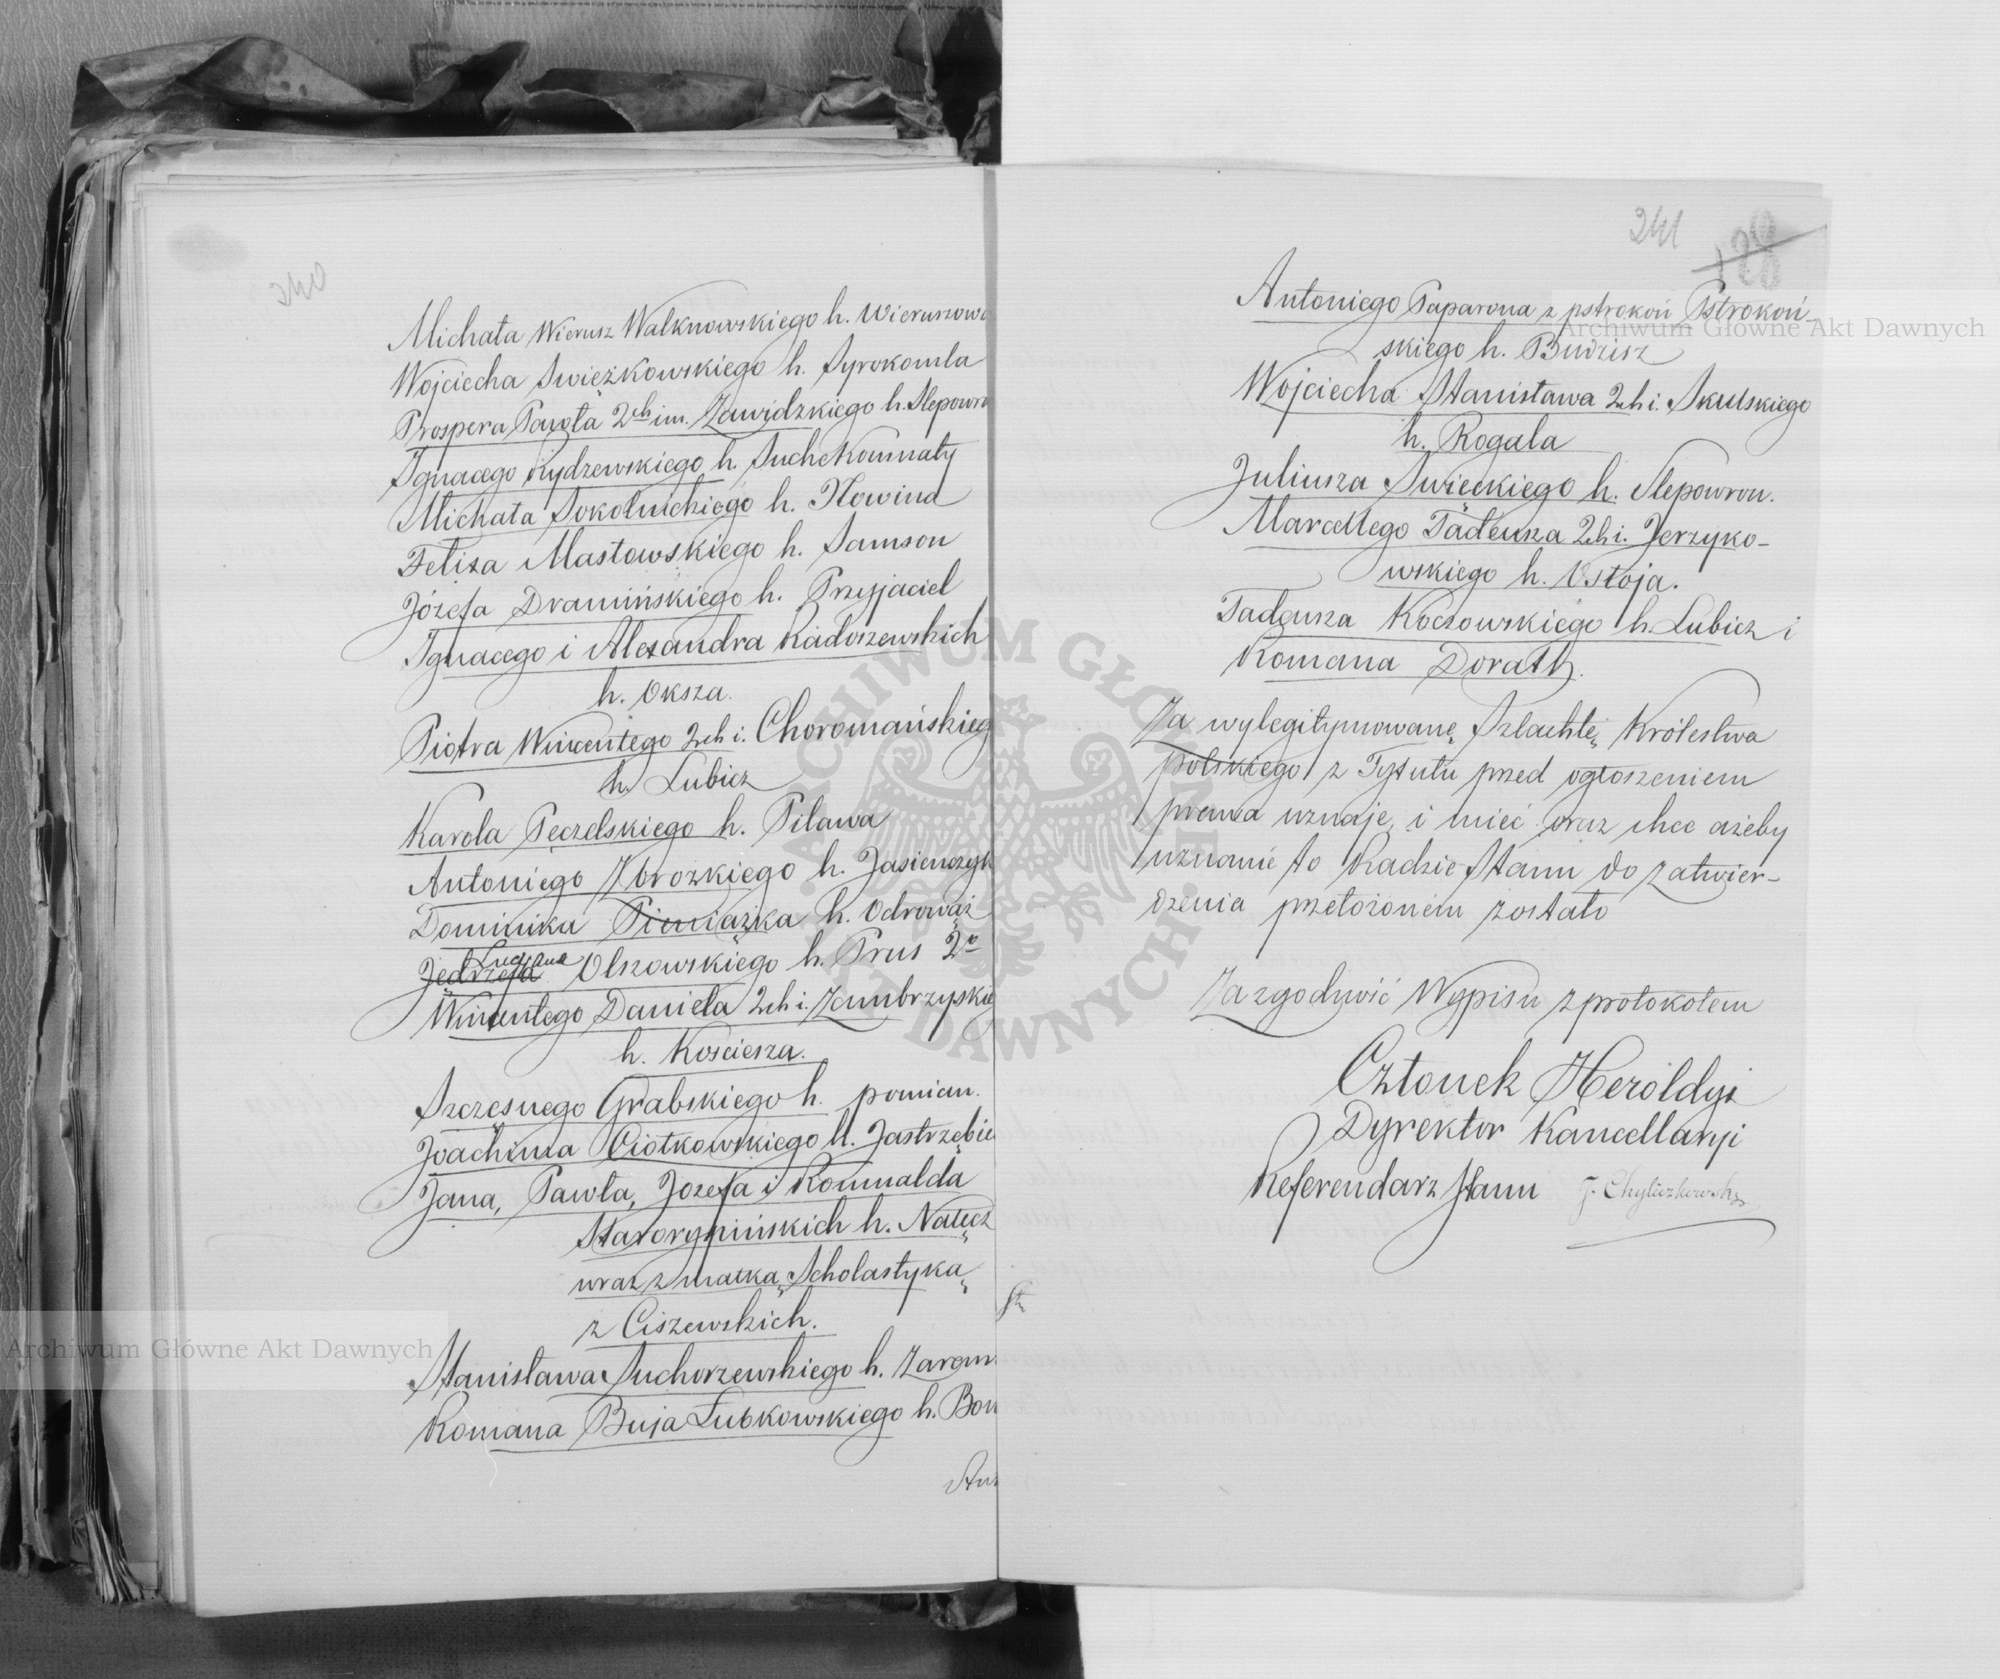 240
Michała Wierusz Walknowskiego h. Wieruszowa
Wojciecha Swięzkowskiego h. Syrokomla
Prospera Pawła 2ch im. Zawidzkiego h. Slepowron
Ignacego Rydzewskiego h. Suche Komnaty
Michała Sokolnickiego h. Nowina
Felixa Masłowskiego h. Samson
Józefa Dramińskiego h. Przyjaciel
Ignacego i Alexandra Radoszewskich
h. Oksza.
Piotra Wincentego 2ch i. Choromańskieg
h. Lubicz
Karola Pęczelskiego h. Pilawa
Antoniego Zbrozkiego h. Jasieńczyk
Dominika Pieniążka h. Odrowąż
Lucyana
Jędrzeja Olszowskiego h. Prus 2o
Wincentego Daniela 2ch i. Zambrzyskie
h. Kosciesza.
Szczęsnego Grabskiego h. pomian.
Joachima Ciotkowskiego H. Jastrzębie
Jana, Pawła, Józefa i Romualda
Starorypińskich h. Nałęcz
wraz z matką Scholastyką
z Ciszewskich.
Stanisława Suchorzewskiego h. Zarem
Romana Buja Łubkowskiego h. Bon
Ant
241
128
Antoniego Paparona z pstrokoń Pstrokoń-
skiego h. Budzisz
Wojciecha Stanisława 2ch i. Skulskiego
h. Rogala
Juliusza Swięckiego h. Slepowron.
Marcellego Tadeusza 2ch i. Jerzyko-
wskiego h. Ostoja.
Tadeusza Koczowskiego h. Lubicz i
Romana Dorath.
Za wylegitymowaną Szlachtę Królestwa
polskiego z Tytułu przed ogłoszeniem
prawa uznaje, i mieć oraz chce ażeby
uznanie to Radzie Stanu do zatwier-
dzenia przełożonem zostało
Za zgodność Wypisu z protokołem
Członek Heroldyi
Dyrektor Kancellaryi
Referendarz Stanu J. Chyliczkowski
Archiwum Główne Akt Dawnych
Archiwum Główne Akt Dawnych
ARCHIWUM GŁÓWNE AKT DAWNYCH